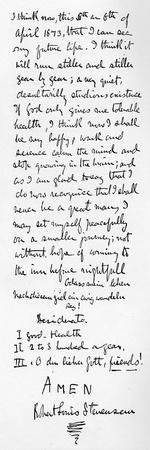 I think now, this 5th or 6th of
April 1873, that I can see
my future life. I think it
will run stiller and stiller
year by year; a very quiet,
desultorily studious existence
If God only gives me tolerable
health, I think now I shall
be very happy; work and
science calm the mind and
stop gnawing in the brain; and
as I am glad to say that I
do now recognise that I shall
never be a great man, I
may set myself peacefully
on a smaller journey; not
without hope of coming to
the inn before nightfall
O dass mein leben
Nach diesem ziel ein ewig wandeln
sey!
Desiderata.
I good-Health
II 2 to 3 hundred a year.
III. O du lieber Gott, friends!
AMEN
Robert Louis Stevenson